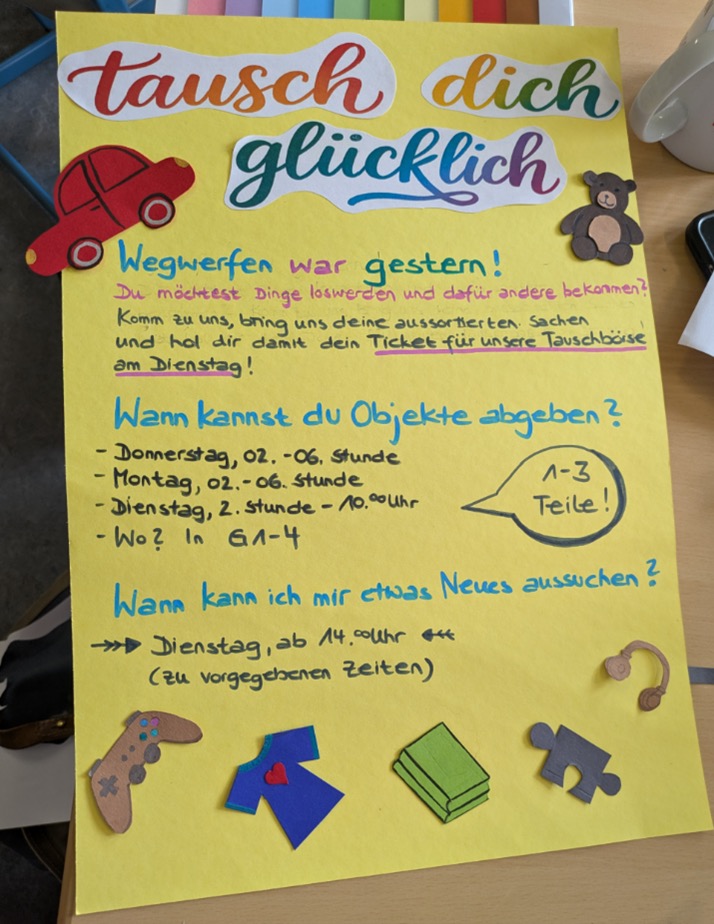 tausch dich
glücklich
Wegwerfen war gestern!
Du möchtest Dinge loswerden und dafür andere bekommen?
Komm zu uns, bring uns deine aussortierten Sachen
und hol dir damit dein Ticket für unsere Tauschbörse
am Dienstag!
Wann kannst du Objekte abgeben?
- Donnerstag, 02. - 06. Stunde
- Montag, 02. - 06. Stunde
- Dienstag, 2. Stunde - 10.00 Uhr
- Wo? In G1-4
1-3
Teile!
Wann kann ich mir etwas Neues aussuchen?
Dienstag, ab 14.00 Uhr
(zu vorgegebenen Zeiten)